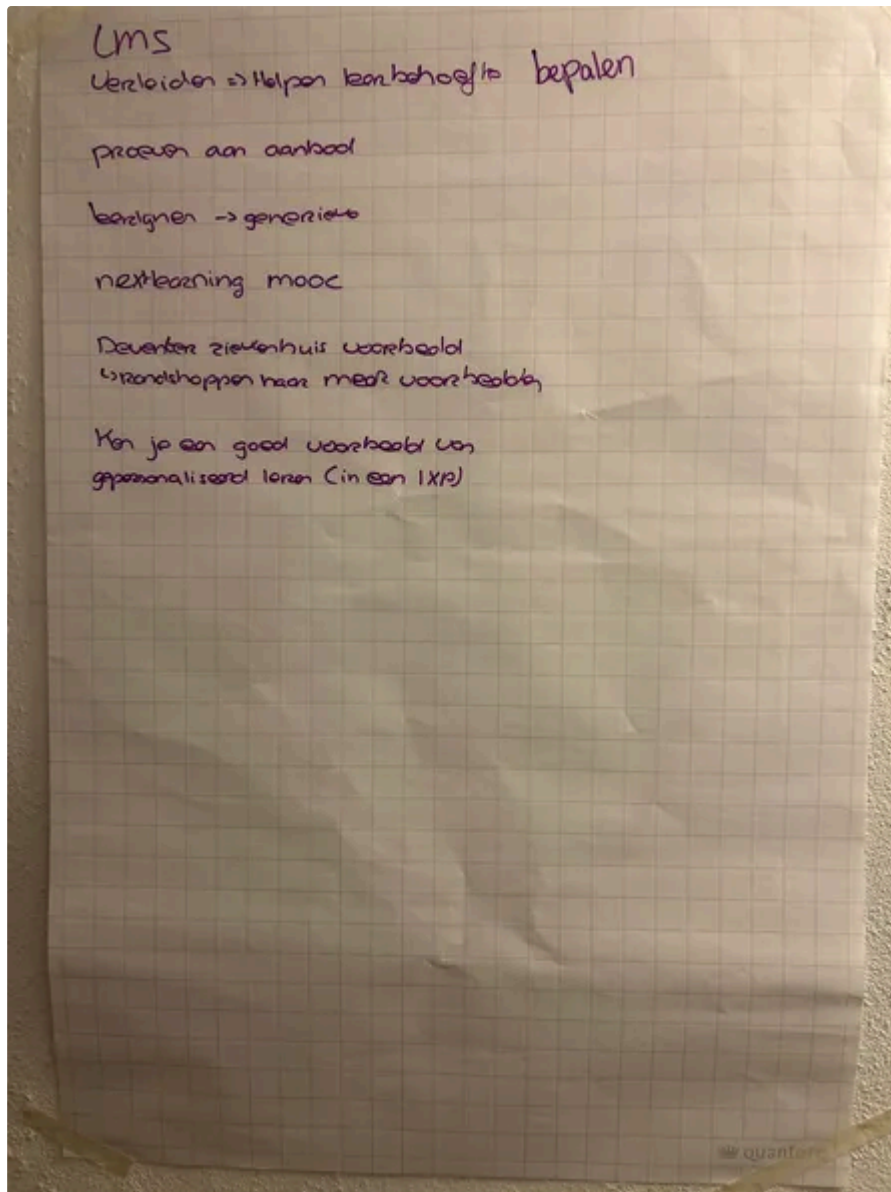 LMS
Verleiden => Helpen leerbehoefte bepalen
proeven aan aanbod
leerlijnen -> generieke
nextlearning mooc
Deventer ziekenhuis voorbeeld
↳ rondshoppen naar meer voorbeelden
Ken je een goed voorbeeld van
gepersonaliseerd leren (in een LXP)
quantore